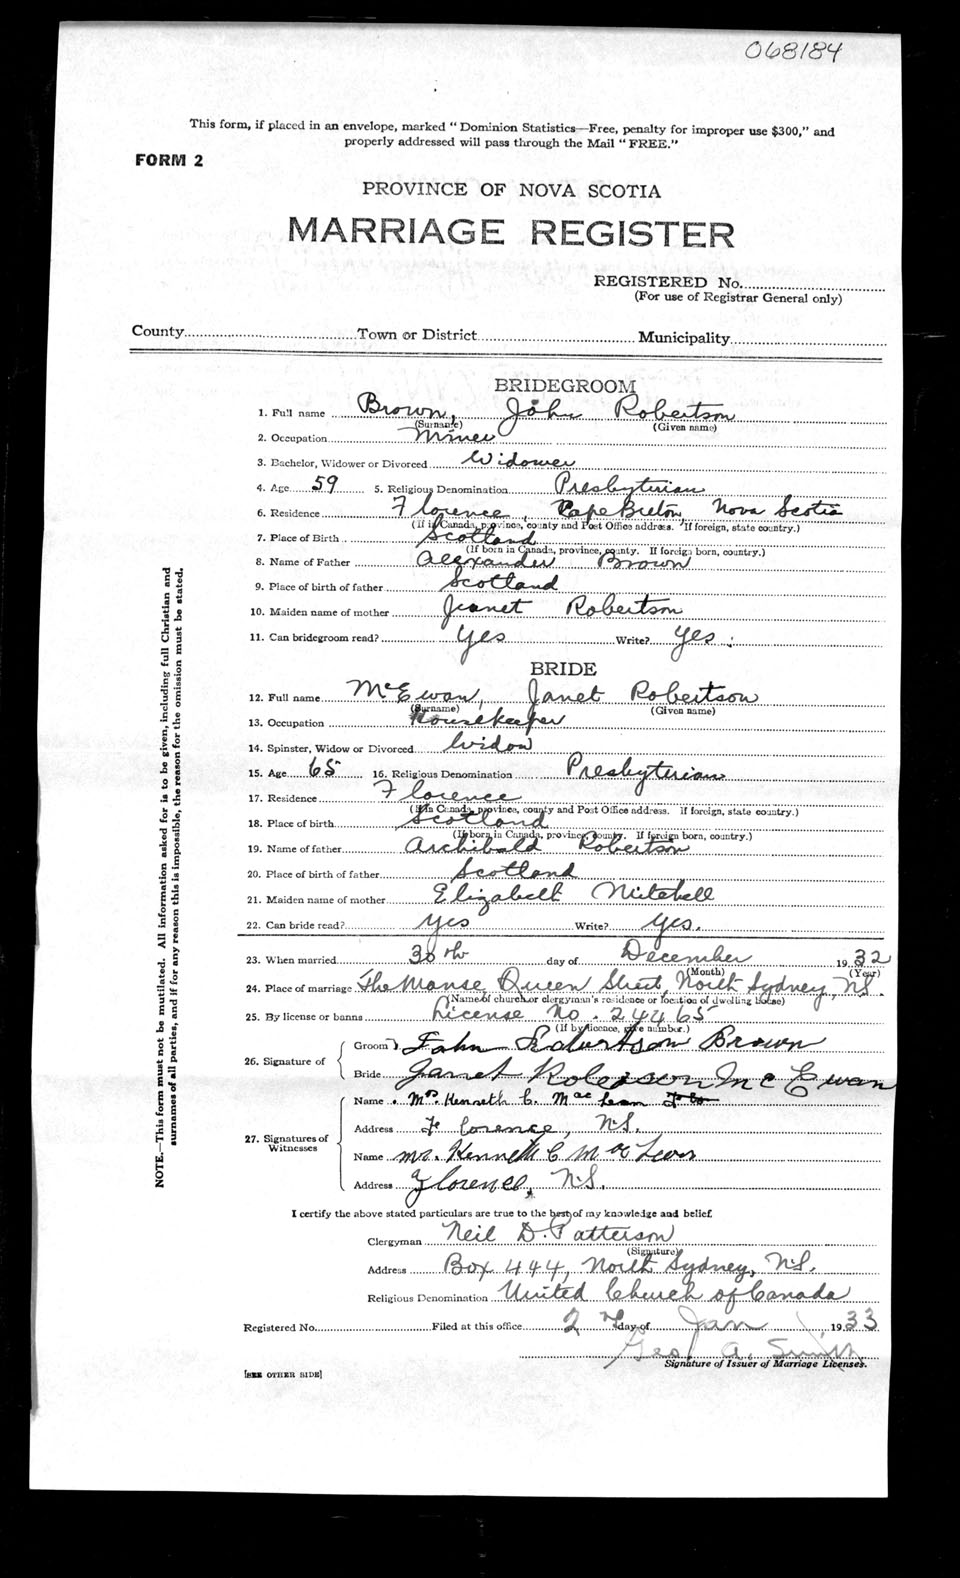 068184
This form, if placed in an envelope, marked "Dominion Statistics—Free, penalty for improper use $300," and
properly addressed will pass through the Mail "FREE."
FORM 2
PROVINCE OF NOVA SCOTIA
MARRIAGE REGISTER
REGISTERED No.
(For use of Registrar General only)
County Town or District Municipality
BRIDEGROOM
1. Full name Brown, John Robertson
(Surname) (Given name)
2. Occupation Miner
3. Bachelor, Widower or Divorced Widower
4. Age 59 5. Religious Denomination Presbyterian
6. Residence Florence, Cape Breton Nova Scotia
(If in Canada, province, county and Post Office address. If foreign, state country.)
7. Place of Birth Scotland
(If born in Canada, province, county. If foreign born, country.)
8. Name of Father Alexander Brown
9. Place of birth of father Scotland
10. Maiden name of mother Jeanet Robertson
11. Can bridegroom read? Yes Write? Yes.
BRIDE
12. Full name McEwan, Janet Robertson
(Surname) (Given name)
13. Occupation Housekeeper
14. Spinster, Widow or Divorced Widow
15. Age 65 16. Religious Denomination Presbyterian
17. Residence Florence
(If in Canada, province, county and Post Office address. If foreign, state country.)
18. Place of birth Scotland
(If born in Canada, province, county. If foreign born, country.)
19. Name of father Archibald Robertson
20. Place of birth of father Scotland
21. Maiden name of mother Elizabeth Mitchell
22. Can bride read? Yes Write? Yes.
23. When married 30th day of December 1932
(Month) (Year)
24. Place of marriage The Manse, Queen Street, North Sydney, N.S.
(Name of church or clergyman's residence or location of dwelling house)
25. By license or banns License No. 24465
(If by licence, give number.)
26. Signature of
Groom John Robertson Brown
Bride Janet Robertson McEwan
27. Signatures of Witnesses
Name Mrs. Kenneth C. MacLean
Address Florence, N.S.
Name Mr. Kenneth C MacLean
Address Florence, N.S.
I certify the above stated particulars are true to the best of my knowledge and belief.
Clergyman Neil D. Patterson
(Signature)
Address Box 444, North Sydney, N.S.
Religious Denomination United Church of Canada
Registered No. Filed at this office 2nd day of Jan 1933
Geo. A. Smith
Signature of Issuer of Marriage Licenses.
[SEE OTHER SIDE]
NOTE.—This form must not be mutilated. All information asked for is to be given, including full Christian and
surnames of all parties, and if for any reason this is impossible, the reason for the omission must be stated.